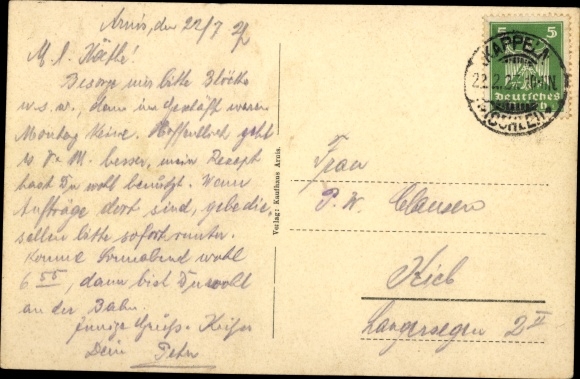 Arnis, den 22/7 27
M. l. Käthe!
Besorge mir bitte Blöcke
u.s.w., denn im Geschäft waren
Montag keine. Hoffentlich geht
es Dr. M. besser, mein Rezept
hast Du wohl benutzt. Wenn
Aufträge dort sind, gebe die-
selben bitte sofort runter.
Komme Sonnabend wohl
6 55, dann bist Du wohl
an der Bahn.
Innige Grüße
Dein Peter
Verlag: Kaufhaus Arnis.
KAPPELN
(SCHLEI)
5 5
Deutsches
Frau
P. W. Clausen
Kiel
2 II